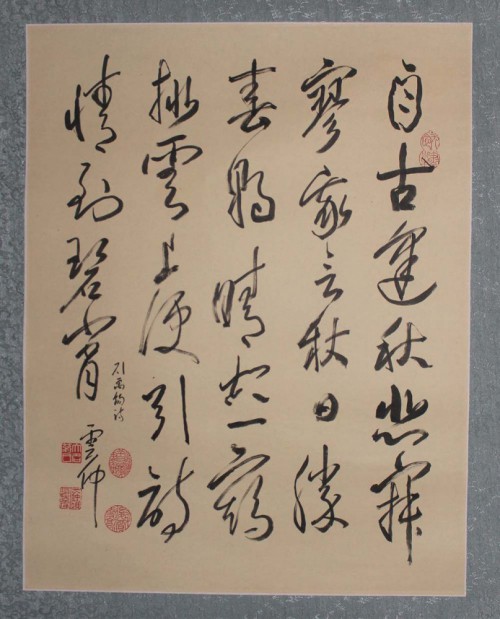 自古逢秋悲寂
寥我言秋日勝
春朝晴空一鶴
排雲上便引詩
情到碧霄
劉禹錫詩
雲仲